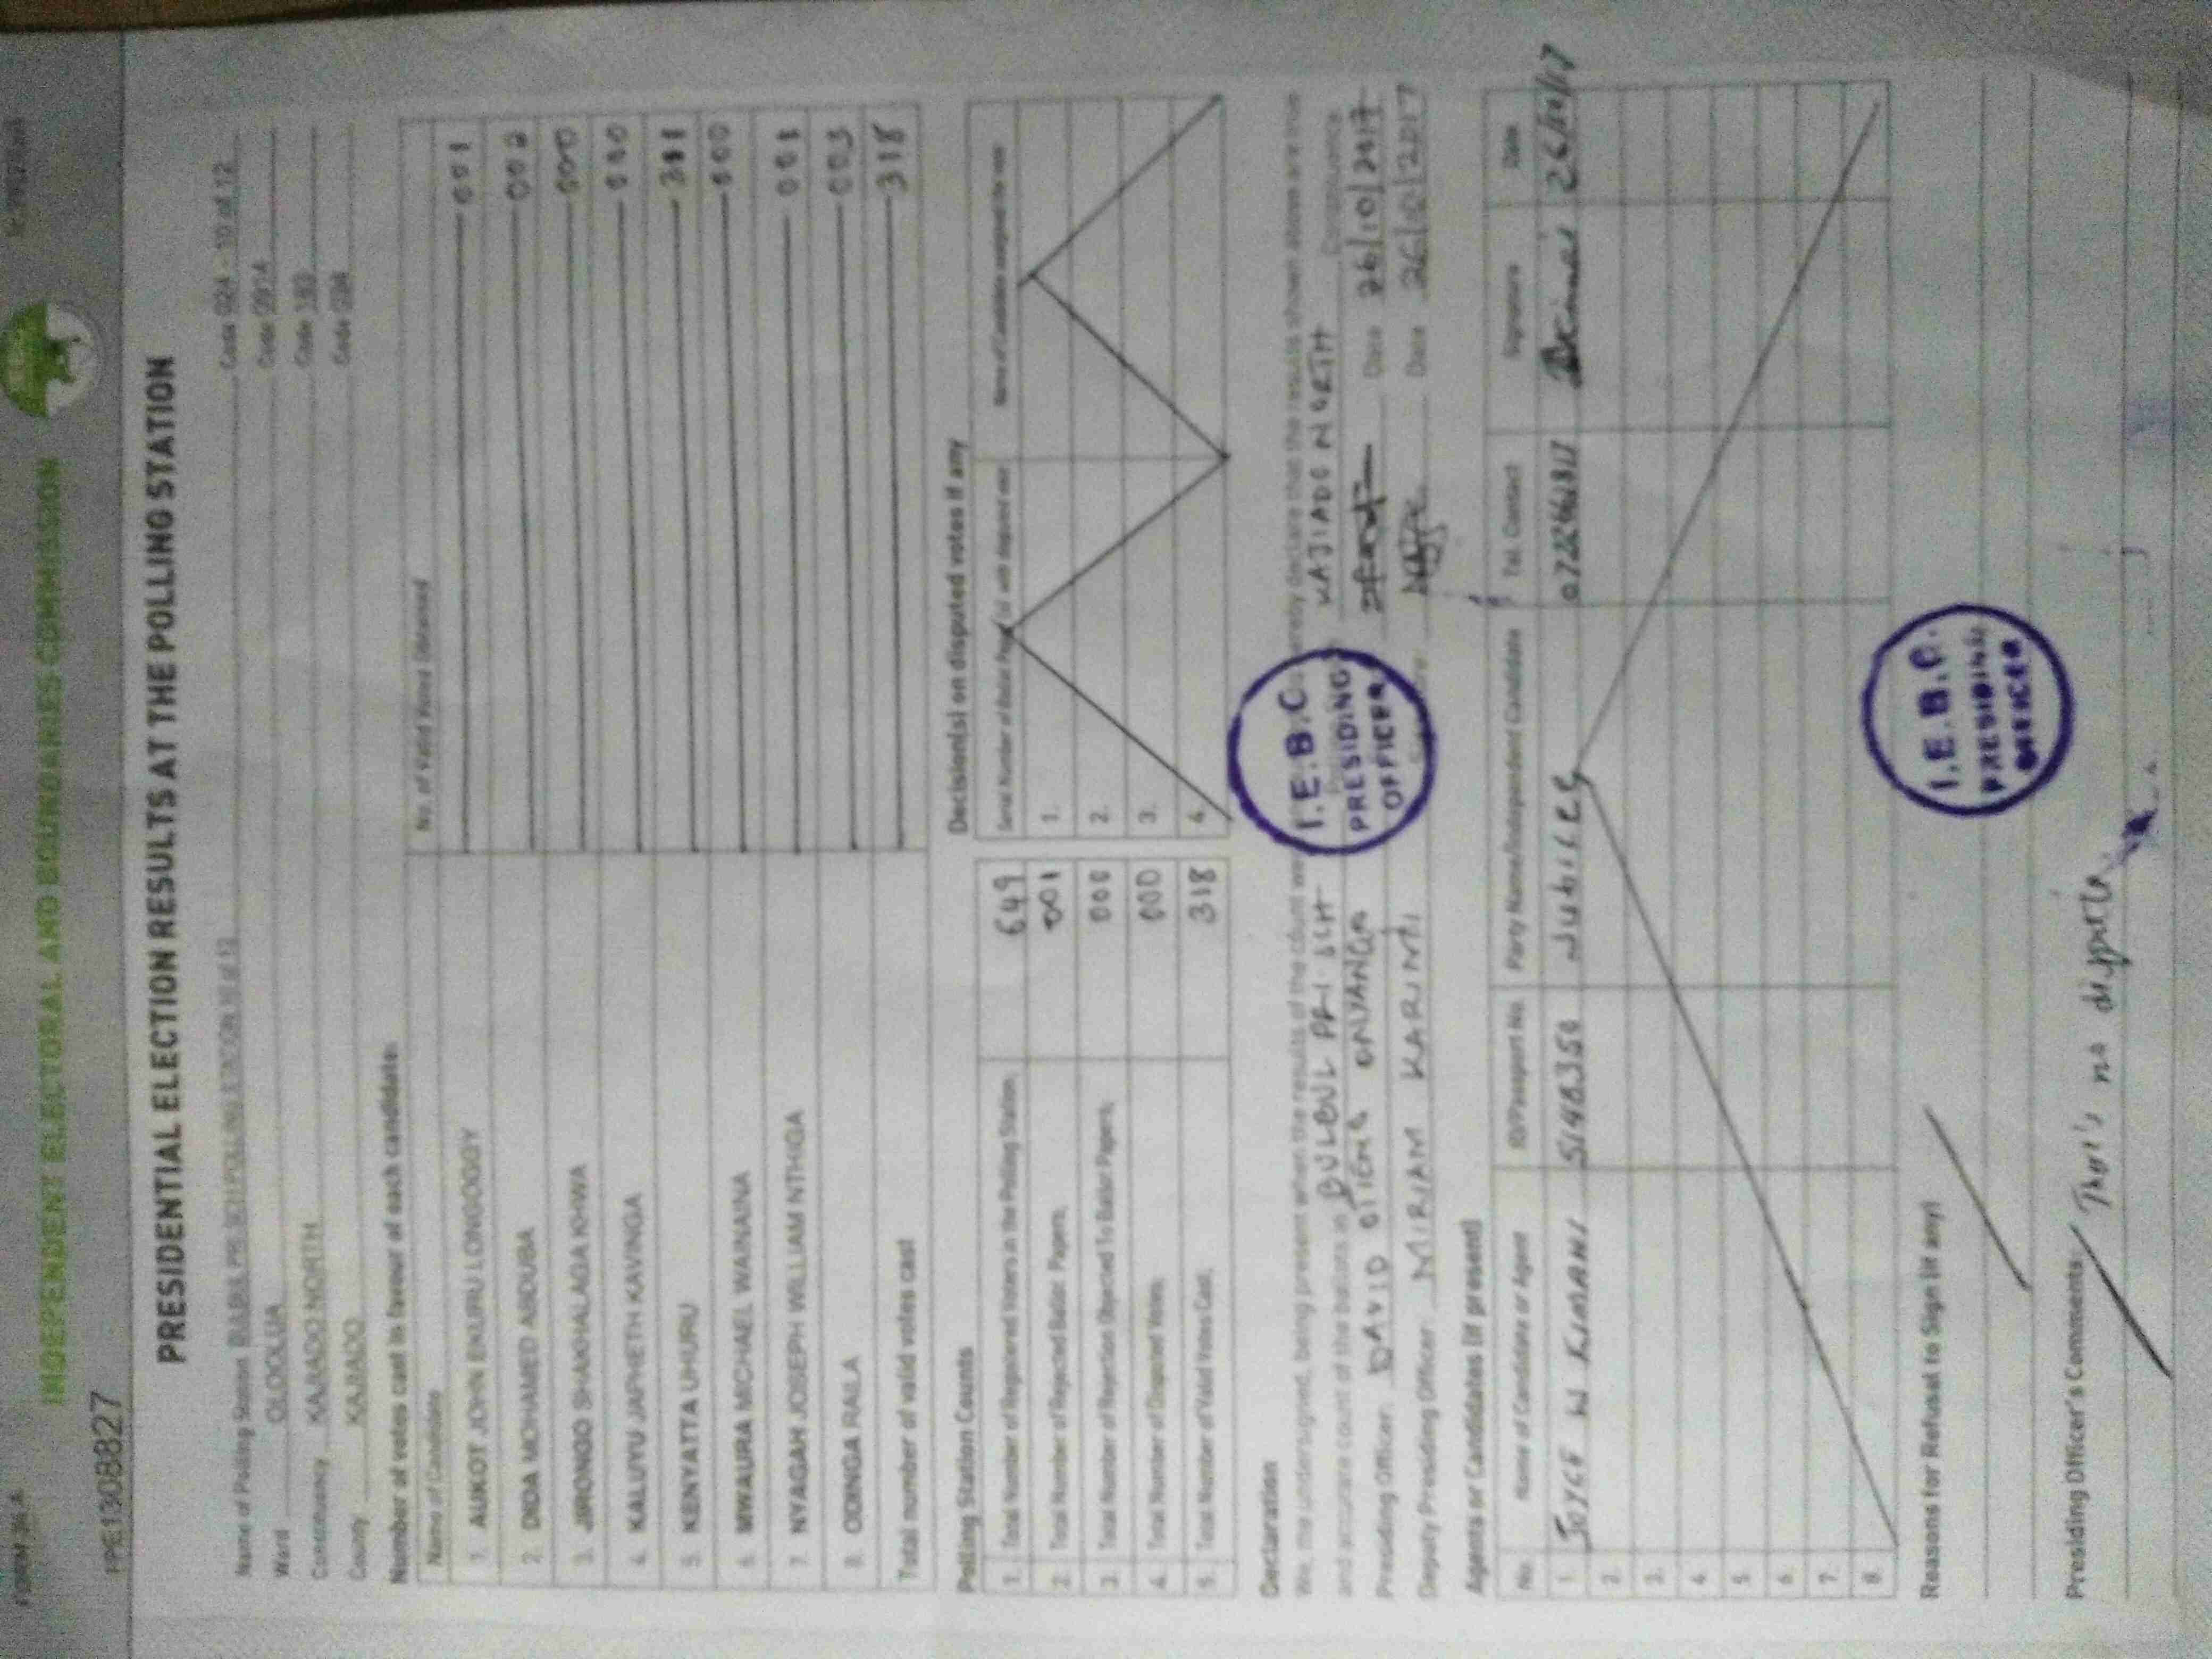 FORM 34 A
INDEPENDENT ELECTORAL AND BOUNDARIES COMMISSION
PE1308827
PRESIDENTIAL ELECTION RESULTS AT THE POLLING STATION
Name of Polling Station BULBUL PRI SCH POLLING STATION 10 of 12 Code 024 - 10 of 12
Ward OLOOLUA Code 0914
Constituency KAJIADO NORTH Code 183
County KAJIADO Code 034
Number of votes cast in favour of each candidate:
Name of Candidate No. of Valid Votes Obtained
1. AUKOT JOHN EKURU LONGOGGY 001
2. DIDA MOHAMED ABDUBA 002
3. JIRONGO SHAKHALAGA KHWA 000
4. KALUYU JAPHETH KAVINGA 000
5. KENYATTA UHURU 311
6. MWAURA MICHAEL WAINAINA 000
7. NYAGAH JOSEPH WILLIAM NTHIGA 001
8. ODINGA RAILA 003
Total number of valid votes cast 318
Polling Station Counts
1. Total Number of Registered Voters in the Polling Station 649
2. Total Number of Rejected Ballot Papers 001
3. Total Number of Rejection Objected To Ballot Papers 000
4. Total Number of Disputed Votes 000
5. Total Number of Valid Votes Cast 318
Decision(s) on disputed votes if any
Serial Number of Ballot Paper(s) with disputed vote Name of Candidate assigned the vote
1.
2.
3.
4.
Declaration
We, the undersigned, being present when the results of the count were hereby declare that the results shown above are true
and accurate count of the ballots in BULBUL PRI SCH KAJIADO NORTH Constituency
Presiding Officer DAVID OTIENO ONYANGO Date 26/10/2017
Deputy Presiding Officer MIRIAM KARIMI Date 26/10/2017
I.E.B.C
PRESIDING
OFFICER
Agents or Candidates (if present)
No. Name of Candidate or Agent ID/Passport No. Party Name/Independent Candidate Tel. Contact Signature Date
1. JOYCE W KIMANI 5148350 Jubilee 26/10/17
2.
3.
4.
5.
6.
7.
8.
I.E.B.C.
PRESIDING
OFFICER
Reasons for Refusal to Sign (if any)
Presiding Officer's Comments: That's no dispute